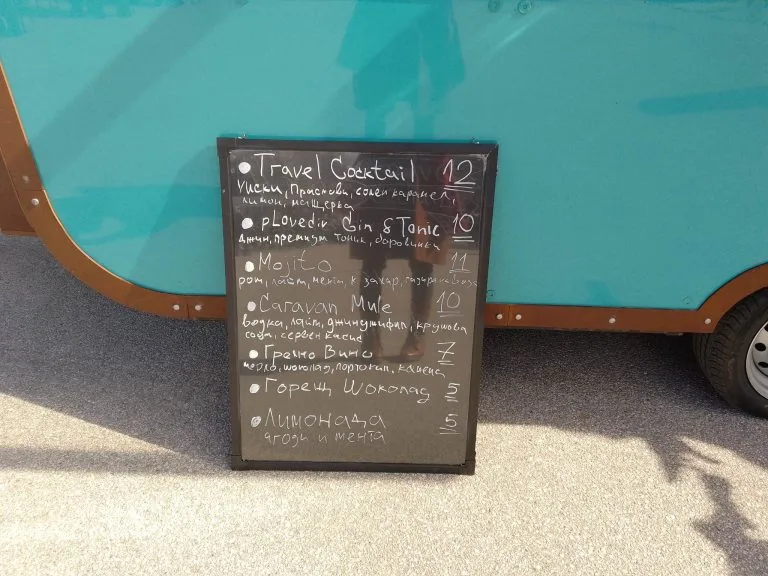 Travel Cocktail 12
уиски, праскова, солен карамел,
лимон, мащерка
pLovediv Gin & Tonic 10
джин, премиум тоник, боровинка
Mojito 11
ром, лайм, мента, к. захар, газирана вода
Caravan Mule 10
водка, лайм, джинджифил, крушова
сода, червен касис
Греяно Вино 7
мерло, шоколад, портокал, канела
Горещ Шоколад 5
Лимонада 5
ягоди и мента